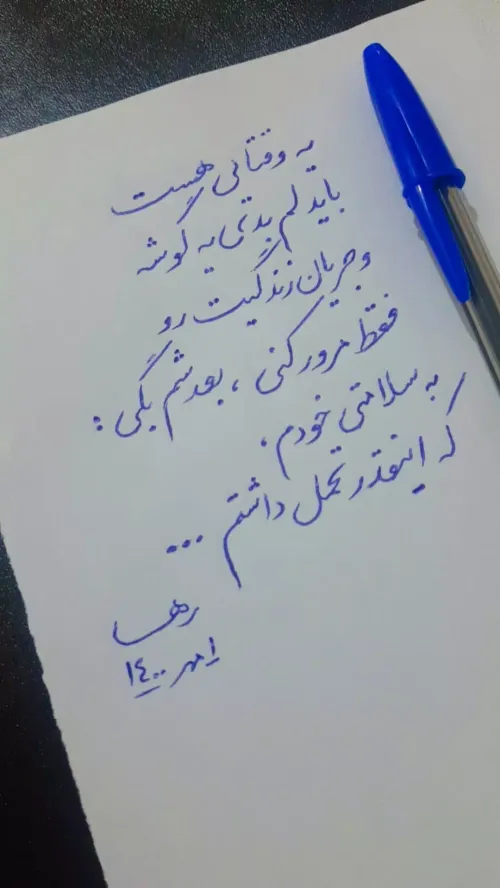 یه وقتایی هست
باید لم بدی یه گوشه
و جریان زندگیت رو
فقط مرور کنی ، بعدشم بگی :
به سلامتی خودم ،
که اینقدر تحمل داشتم ...
رها
۱ مهر ۱٤۰۰